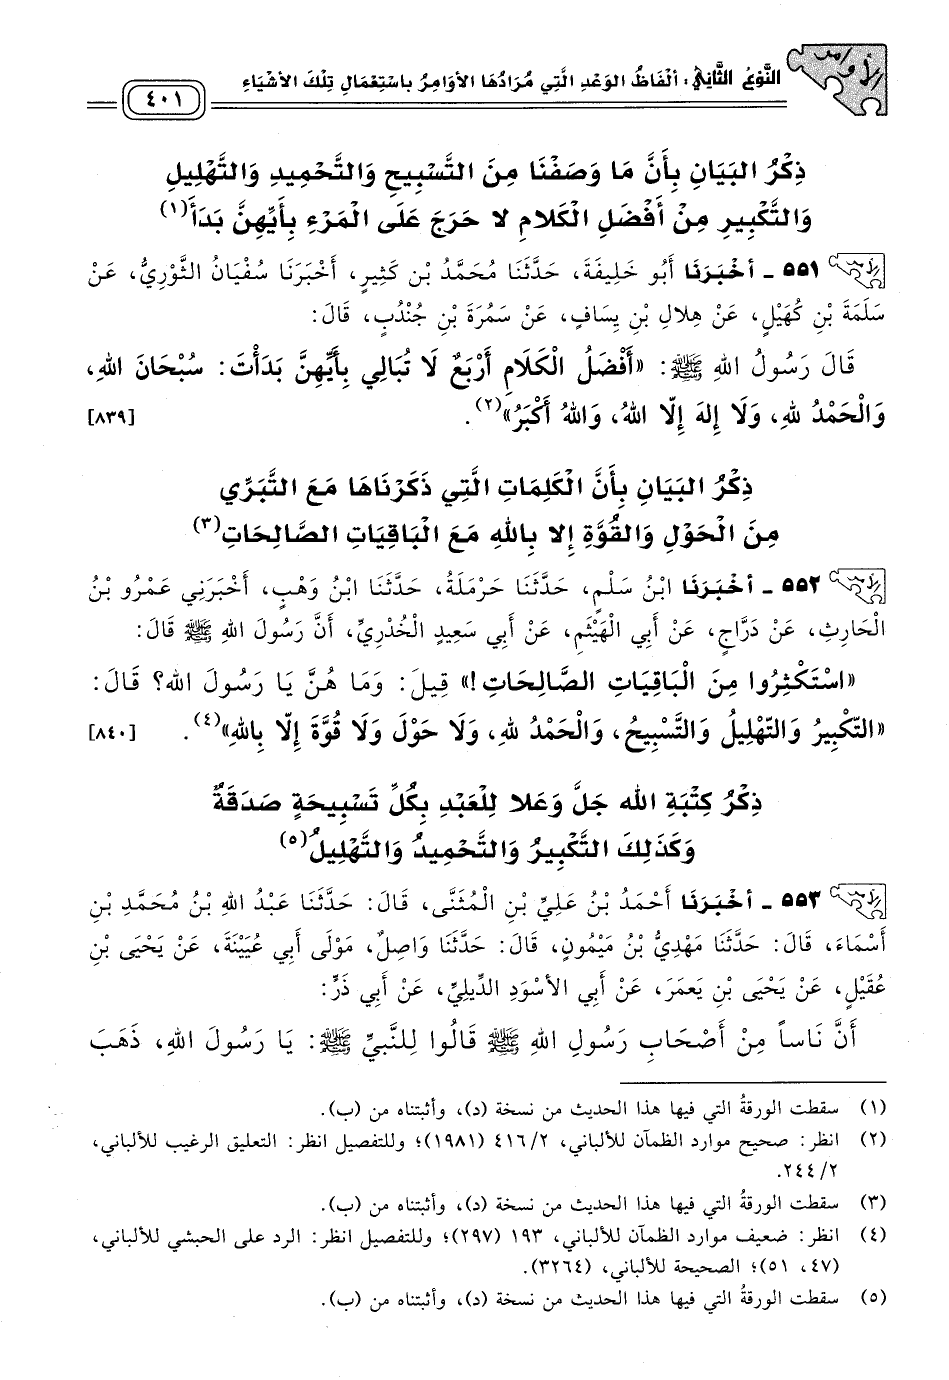 الأوامر
النَّوْعُ الثَّانِيْ: أَلْفَاظُ الوَعْدِ الَّتِي مُرَادُهَا الأَوَامِرُ بِاسْتِعْمَالِ تِلْكَ الأَشْيَاءِ
٤٠١
ذِكْرُ البَيَانِ بِأَنَّ مَا وَصَفْنَا مِنَ التَّسْبِيحِ وَالتَّحْمِيدِ وَالتَّهْلِيلِ
وَالتَّكْبِيرِ مِنْ أَفْضَلِ الْكَلَامِ لا حَرَجَ عَلَى الْمَرْءِ بِأَيِّهِنَّ بَدَأَ(١)
٥٥١ - أَخْبَرَنَا أَبُو خَلِيفَةَ، حَدَّثَنَا مُحَمَّدُ بْنُ كَثِيرٍ، أَخْبَرَنَا سُفْيَانُ الثَّوْرِيُّ، عَنْ
سَلَمَةَ بْنِ كُهَيْلٍ، عَنْ هِلالِ بْنِ يِسَافٍ، عَنْ سَمُرَةَ بْنِ جُنْدُبٍ، قَالَ:
قَالَ رَسُولُ اللهِ ﷺ: «أَفْضَلُ الْكَلَامِ أَرْبَعٌ لَا تُبَالِي بِأَيِّهِنَّ بَدَأْتَ: سُبْحَانَ اللهِ،
وَالْحَمْدُ للهِ، وَلَا إِلهَ إِلّا اللهُ، وَاللهُ أَكْبَرُ»(٢). [٨٣٩]
ذِكْرُ البَيَانِ بِأَنَّ الْكَلِمَاتِ الَّتِي ذَكَرْنَاهَا مَعَ التَّبَرِّي
مِنَ الْحَوْلِ وَالقُوَّةِ إِلا بِاللهِ مَعَ الْبَاقِيَاتِ الصَّالِحَاتِ(٣)
٥٥٢ - أَخْبَرَنَا ابْنُ سَلْمٍ، حَدَّثَنَا حَرْمَلَةُ، حَدَّثَنَا ابْنُ وَهْبٍ، أَخْبَرَنِي عَمْرُو بْنُ
الْحَارِثِ، عَنْ دَرَّاجٍ، عَنْ أَبِي الْهَيْثَمِ، عَنْ أَبِي سَعِيدٍ الْخُدْرِيِّ، أَنَّ رَسُولَ اللهِ ﷺ قَالَ:
«اسْتَكْثِرُوا مِنَ الْبَاقِيَاتِ الصَّالِحَاتِ!» قِيلَ: وَمَا هُنَّ يَا رَسُولَ اللهِ؟ قَالَ:
«التَّكْبِيرُ وَالتَّهْلِيلُ وَالتَّسْبِيحُ، وَالْحَمْدُ للهِ، وَلَا حَوْلَ وَلَا قُوَّةَ إِلّا بِاللهِ»(٤). [٨٤٠]
ذِكْرُ كِتْبَةِ اللهِ جَلَّ وَعَلا لِلْعَبْدِ بِكُلِّ تَسْبِيحَةٍ صَدَقَةٌ
وَكَذلِكَ التَّكْبِيرُ وَالتَّحْمِيدُ وَالتَّهْلِيلُ(٥)
٥٥٣ - أَخْبَرَنَا أَحْمَدُ بْنُ عَلِيِّ بْنِ الْمُثَنَّى، قَالَ: حَدَّثَنَا عَبْدُ اللهِ بْنُ مُحَمَّدِ بْنِ
أَسْمَاءَ، قَالَ: حَدَّثَنَا مَهْدِيُّ بْنُ مَيْمُونٍ، قَالَ: حَدَّثَنَا وَاصِلٌ، مَوْلَى أَبِي عُيَيْنَةَ، عَنْ يَحْيَى بْنِ
عُقَيْلٍ، عَنْ يَحْيَى بْنِ يَعمَرَ، عَنْ أَبِي الأَسْوَدِ الدِّيلِيِّ، عَنْ أَبِي ذَرٍّ:
أَنَّ نَاساً مِنْ أَصْحَابِ رَسُولِ اللهِ ﷺ قَالُوا لِلنَّبِيِّ ﷺ: يَا رَسُولَ اللهِ، ذَهَبَ
(١) سقطت الورقةُ التي فيها هذا الحديث من نسخة (د)، وأثبتناه من (ب).
(٢) انظر: صحيح موارد الظمآن للألباني، ٤١٦/٢ (١٩٨١)؛ وللتفصيل انظر: التعليق الرغيب للألباني،
٢٤٤/٢.
(٣) سقطت الورقةُ التي فيها هذا الحديث من نسخة (د)، وأثبتناه من (ب).
(٤) انظر: ضعيف موارد الظمآن للألباني، ١٩٣ (٢٩٧)؛ وللتفصيل انظر: الرد على الحبشي للألباني،
(٤٧، ٥١)؛ الصحيحة للألباني، (٣٢٦٤).
(٥) سقطت الورقةُ التي فيها هذا الحديث من نسخة (د)، وأثبتناه من (ب).